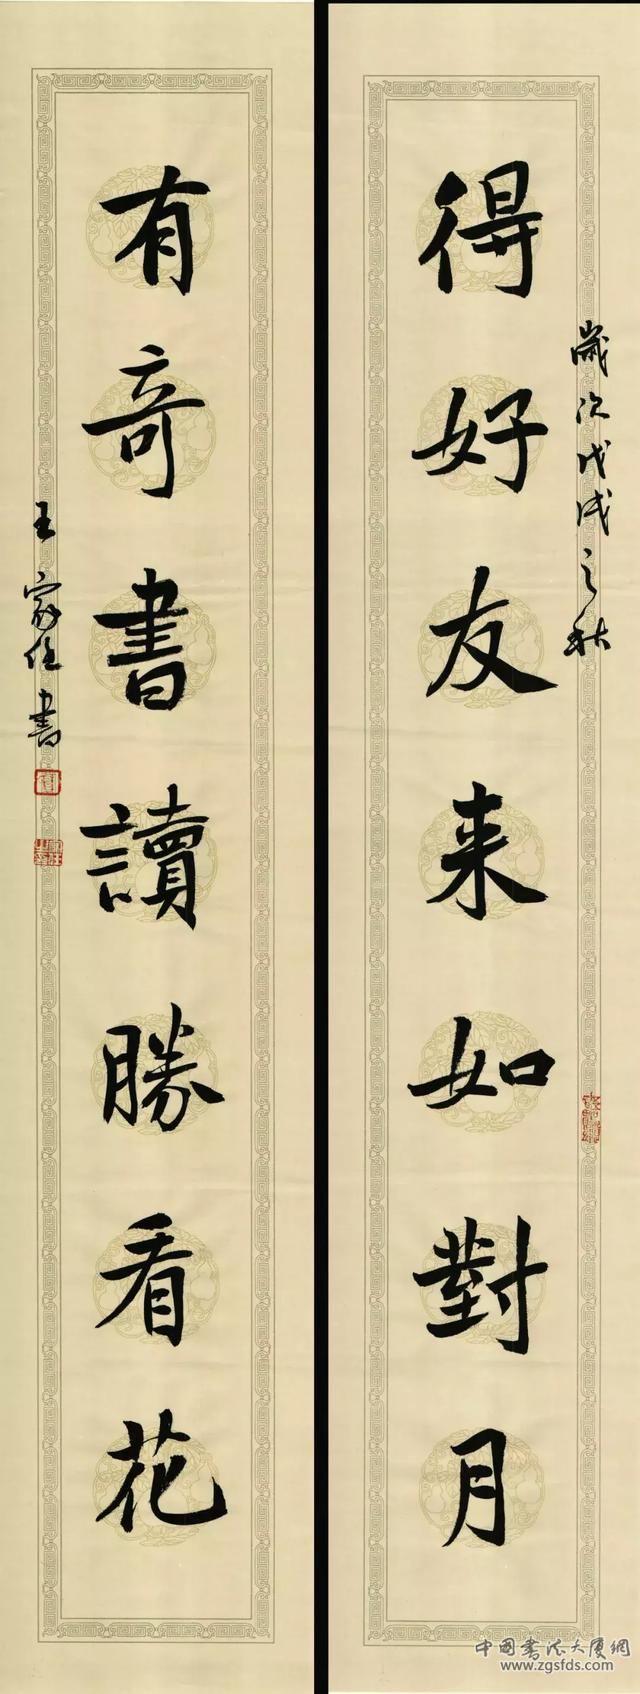 歲次戊戌之秋
得好友来如對月
有奇書讀勝看花
王家恆書
中国书法大厦網
www.zgsfds.com